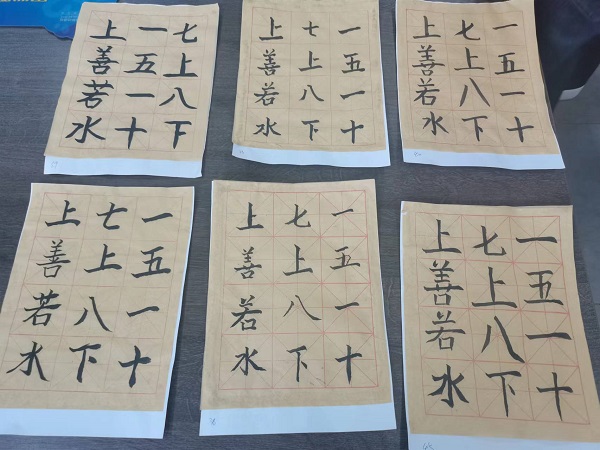 七上八下
一五一十
上善若水
一五一十
七上八下
上善若水
一五一十
七上八下
上善若水
一五一十
七上八下
上善若水
一五一十
七上八下
上善若水
一五一十
七上八下
上善若水